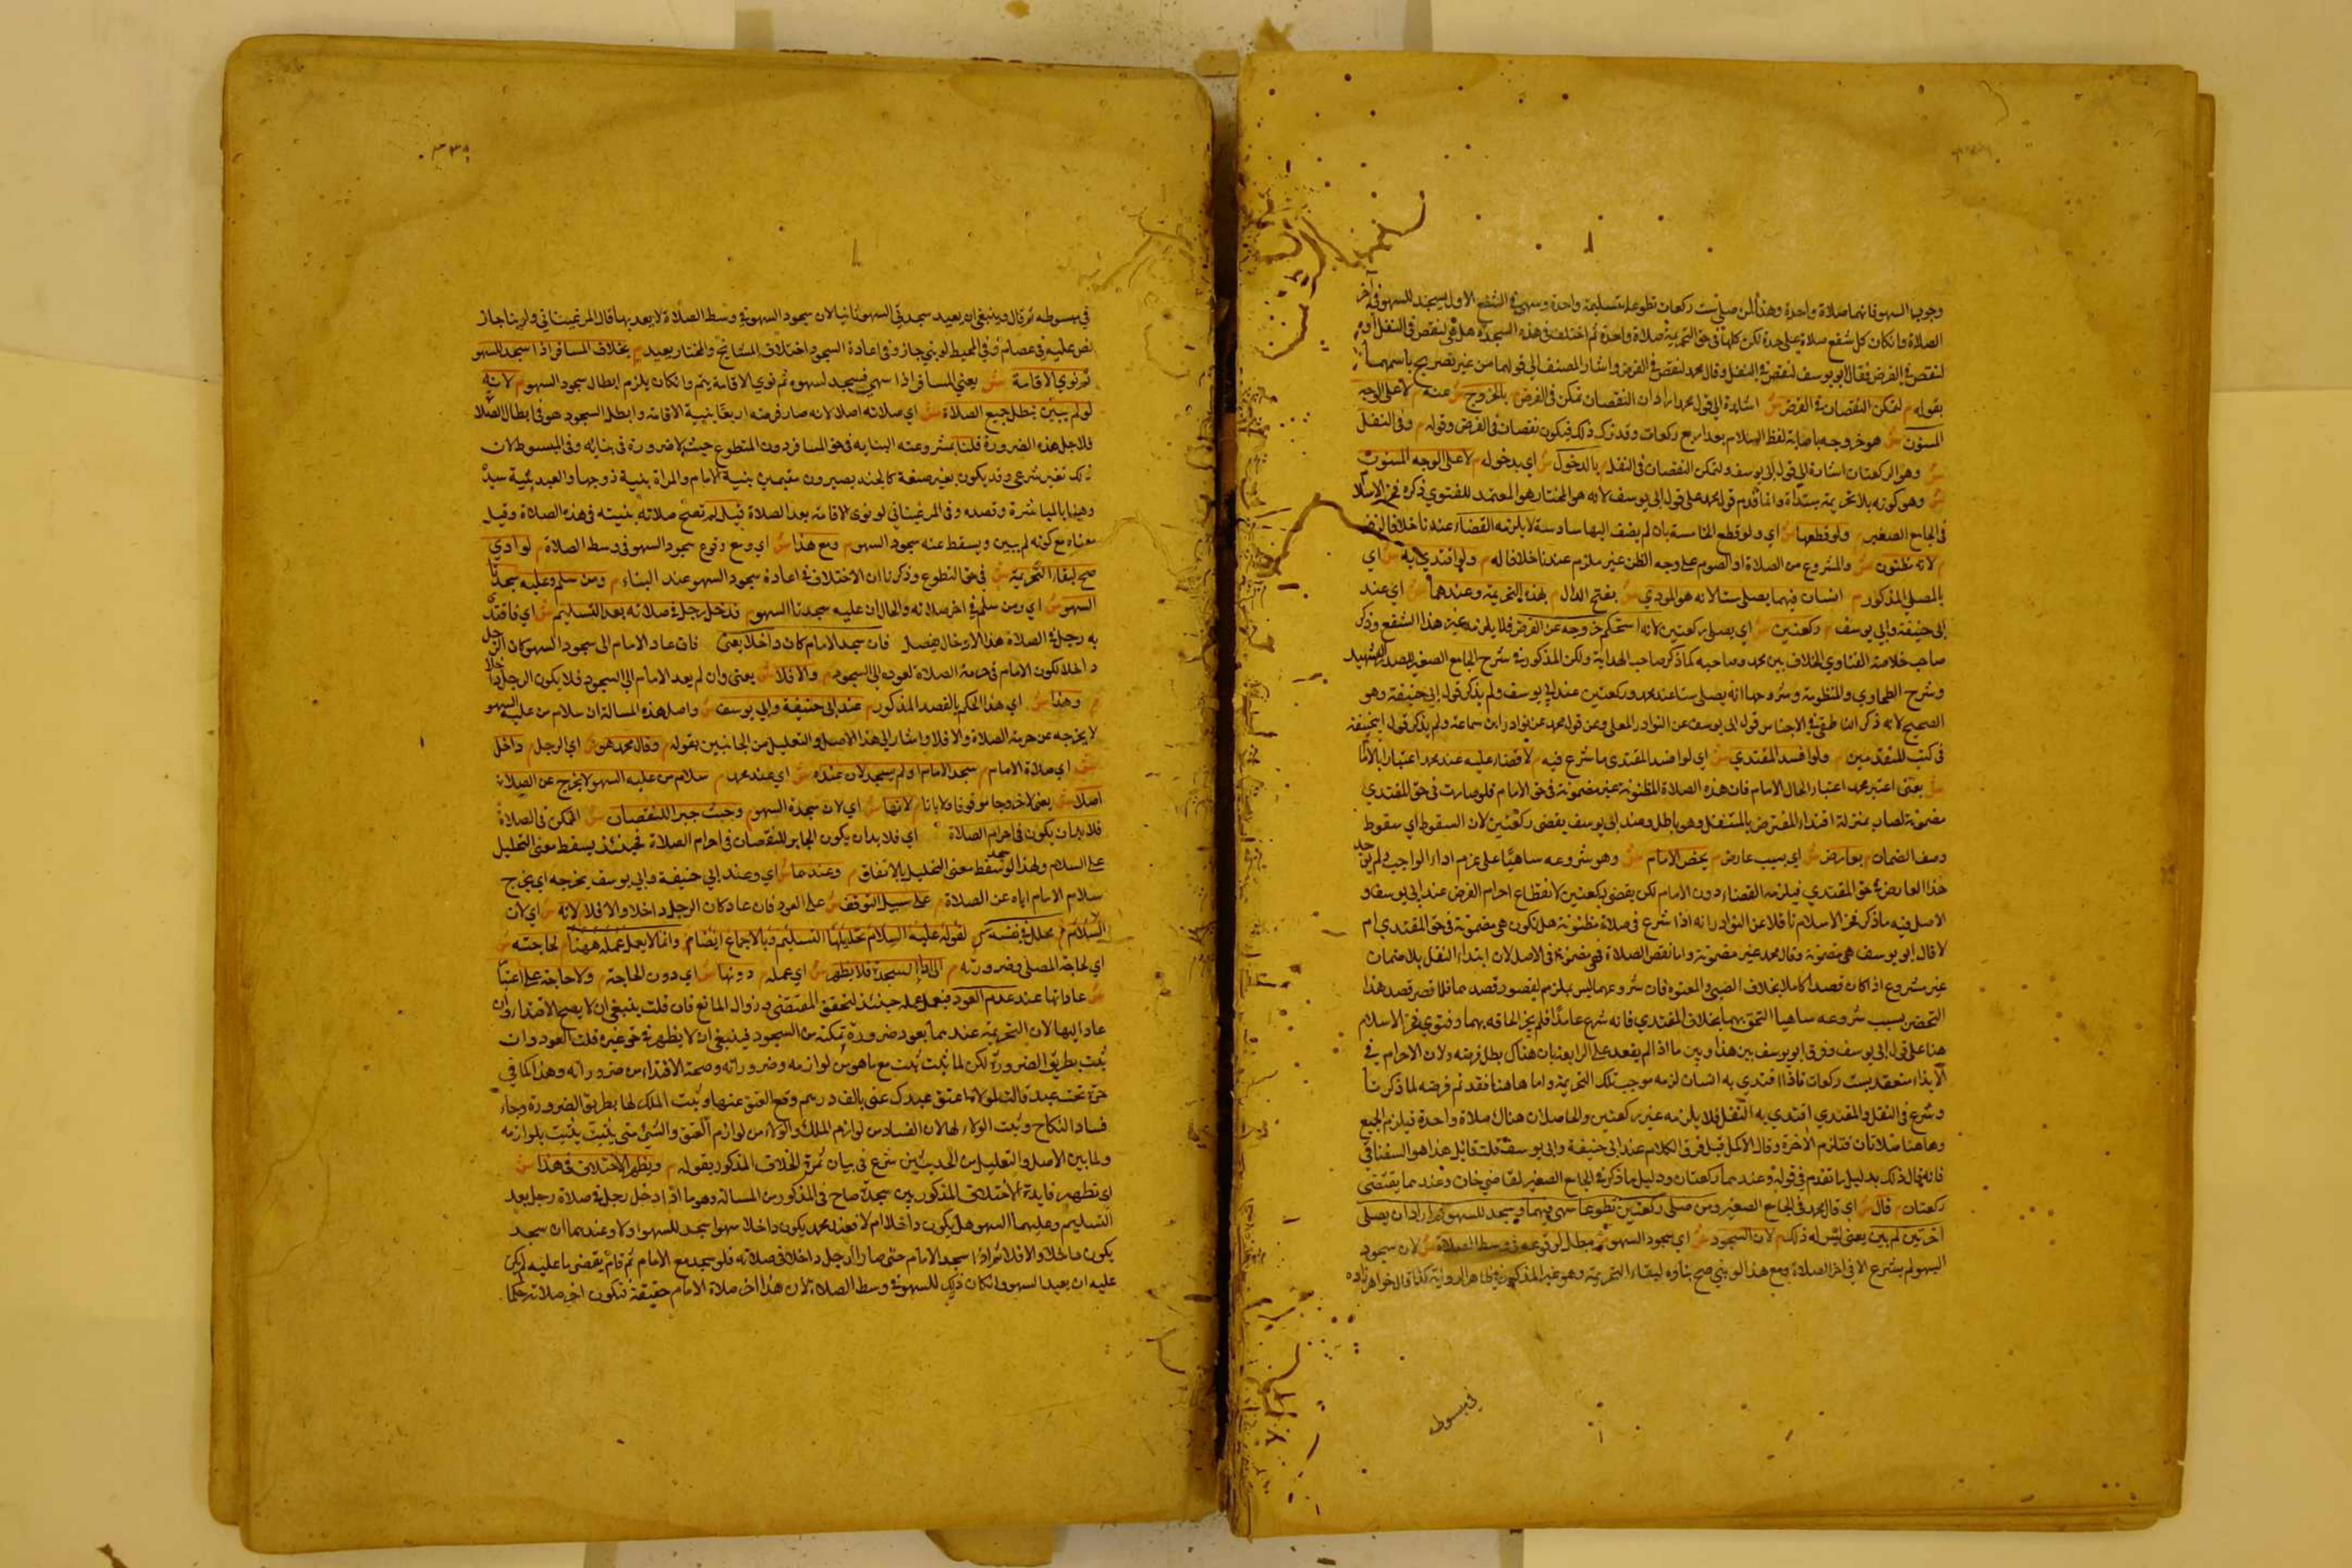 وجوب السهو فانهما صلاة واحدة وهذا لمن صلى ست ركعات تطوعا بتسليمة واحدة وسهى في الشفع الاول يسجد للسهو في آخر
الصلاة وان كان كل شفع صلاة على حدة لكن كلها في حق التحريمة صلاة واحدة ثم اختلف في هذه السجدة هل هي لنقص في النفل او
لنقص في الفرض فقال ابو يوسف لنقص في النفل وقال محمد لنقص في الفرض واشار المصنف الى قولهما من غير تصريح باسمهما
بقوله م لتمكن النقصان في الفرض ش اشارة الى قول محمد اراد ان النقصان تمكن في الفرض م بالخروج ش عنه م لا على الوجه
المسنون ش هو خروجه باصابة لفظ السلام بعد اربع ركعات وقد ترك ذلك فيكون نقصان في الفرض وقوله م وفي النفل
ش وهو الركعتان اشارة الى قول ابي يوسف ولتمكن النقصان في النفل م بالدخول ش اي بدخوله م لا على الوجه المسنون
ش وهو كونه بلا تحريمة مبتداة وانما قدم قول محمد على قول ابي يوسف لانه هو المختار هو المعتمد للفتوي ذكره فخر الاسلام
في الجامع الصغير م ولو قطعها ش اي ولو قطع الخامسة بان لم يضف اليها سادسة لا يلزمه القضاء عندنا خلافا لزفر
م لانه مظنون ش والشروع من الصلاة او الصوم على وجه الظن غير ملزم عندنا خلافا له م ولو اقتدي به ش اي
بالمصلي المذكور م انسان فيهما يصلي ستا لانه هو المودي ش بفتح الدال م بهذه التحريمة وعندهما ش اي عند
ابي حنيفة وابي يوسف م ركعتين ش اي يصلي ركعتين لانه استحكم خروجه عن الفرض فلا يلزمه غير هذا الشفع وذكر
صاحب خلاصة الفتاوي الخلاف بين محمد وصاحبيه كما ذكر صاحب الهداية ولكن المذكور في شرح الجامع الصغير للصدر الشهيد
وشرح الطحاوي والمنظومة وشروحها انه يصلي ستا عند محمد وركعتين عند ابي يوسف ولم يذكر قول ابي حنيفة وهو
الصحيح لانه ذكر الناطفي في الاجناس قول ابي يوسف عن النوادر المعلى وعن قول محمد عن نوادر ابن سماعة ولم يذكر قول ابي حنيفة
في كتب المتقدمين م ولو افسد المقتدي ش اي لو افسد المقتدى ما شرع فيه م لا قضاء عليه عند محمد اعتبارا بالامام
ش يعني اعتبر محمد اعتبار الحال الامام فان هذه الصلاة المظنونة غير مضمونة في حق الامام فلو صارت في حق المقتدي
مضمونة لصار بمنزلة اقتداء المفترض بالمتنفل وهو باطل وعند ابي يوسف يقضى ركعتين لان السقوط اي سقوط
وصف الضمان م بعارض ش اي بسبب عارض م يخص الامام ش وهو شروعه ساهيا على عزم اداء الواجب ولم يوجد
هذا العارض في حق المقتدي فيلزمه القضاء دون الامام لكن يقضي ركعتين لانقطاع احرام الفرض عند ابي يوسف و
الاصل فيه ما ذكر فخر الاسلام ناقلا عن النوادر انه اذا شرع في صلاة مظنونة هل تكون هي مضمونة في حق المقتدي ام
لا قال ابو يوسف هي مضمونة وقال محمد غير مضمونة واما نقص الصلاة فهي مضمونة في الاصل لان ابتداء النفل بلا ضمان
غير مشروع اذا كان قصدا كاملا بخلاف الصبي والمعتوه فان شروعهما ليس بملزم لقصور قصدهما فلما قصر قصد هذا
الشخص بسبب شروعه ساهيا التحق بهما بخلاف المقتدي فانه شرع عامدا فلم يجز الحاقه بهما وفتوي فخر الاسلام
هنا على قول ابي يوسف وفرق ابو يوسف بين هذا وبين ما اذا لم يقعد على الرابعة بان هناك بطل فرضه ولان الاحرام في
الابتداء منعقد بست ركعات فاذا اقتدي به انسان لزمه موجب تلك التحريمة واما هاهنا فقد تم فرضه لما ذكرنا
وشرع في النفل والمقتدي اقتدي به في النفل فلا يلزمه غير ركعتين والحاصل ان هناك صلاة واحدة فيلزم الجميع
وهاهنا صلاتان فتلزم الاخرة وقال الاكمل قيل فرق الكلام عند ابي حنيفة وابي يوسف قلت قائل هذا هو السغناقي
فانه قال ذلك بدليل ما تقدم في قوله وعندهما ركعتان ودليل ما ذكر في الجامع الصغير لقاضي خان وعندهما يقتضى
ركعتان م قال ش اي قال محمد في الجامع الصغير ومن صلى ركعتين تطوعا سهى فيهما وسجد للسهو ثم اراد ان يصلى
اخرتين لم يبن يعني ليس له ذلك م لان السجود ش اي سجود السهو م يبطل لوقوعه في وسط الصلاة ش لان سجود
السهو لم يشرع الا في اخر الصلاة ومع هذا لو بني صح بناؤه لبقاء التحريمة وهو غير المذكور في ظاهر الرواية كذا قال خواهر زاده
في مبسوطه
٣٣٨
في مبسوطه ثم قال وينبغي ان يعيد سجدتي السهو ثانيا لان سجود السهو في وسط الصلاة لا يعد بها قال المرغيناني ولو بنا جاز
نص عليه في عصام وفي المحيط لو بني جاز وفي اعادة السجود اختلاف المشائخ والمختار يعيد م بخلاف المسافر اذا سجد السهو
ثم نوي الاقامة ش يعني المسافر اذا سهي فسجد لسهوه ثم نوي الاقامة يتم وان كان يلزم ابطال سجود السهو م لانه
لو لم يبين تبطل جميع الصلاة ش اي صلاته اصلا لانه صار فرضه اربعا بنية الاقامة وابطل السجود هو في ابطال الصلاة
فلاجل هذه الضرورة قلنا بشروعته البناء به في حق المسافر دون المتطوع حيث لا ضرورة في بنائه وفي المبسوط لان
ذلك تغير شرعي وقد يكون بغير صنعه كالجند يصيرون مقيمين بنية الامام والمراة بنية زوجها والعبد بنية سيده
وهذا بالمباشرة وقصده وفي المرغيناني لو نوى الاقامة بعد الصلاة قيل لم تصح صلاته بنيته في هذه الصلاة وقيل
معناه مع كونه لم يبين ويسقط عنه سجود السهو م ومع هذا ش اي ومع وقوع سجود السهو في وسط الصلاة م لو ادي
صح لبقاء التحريمة ش في حق التطوع وذكرنا ان الاختلاف في اعادة سجود السهو عند البناء م ومن سلم وعليه سجدتا
السهو ش اي ومن سلم في اخر صلاته والحال ان عليه سجدتا السهو م فدخل رجل في صلاته بعد التسليم ش اي فاقتدى
به رجل في الصلاة هذا الادخال فيصل فان سجد الامام كان داخلا يعني فان عاد الامام الى سجود السهو كان الرجل
داخلا لكون الامام في حرمة الصلاة لعوده الى السجود م والا فلا ش يعني وان لم يعد الامام الى السجود فلا يكون الرجل داخلا
م وهذا ش اي هذا الحكم بالقصد المذكور م عند ابي حنيفة وابي يوسف ش واصل هذه المسالة ان سلام من عليه السهو
لا يخرجه عن حرمة الصلاة والا فلا واشار الى هذا الاصل والتعليل من الجانبين بقوله م وقال محمد هو ش اي الرجل م داخل
ش اي صلاة الامام م سجد الامام او لم يسجد لان عنده ش اي عند محمد م سلام من عليه السهو لا يخرج عن الصلاة
اصلا ش يعني لا خروجا موقوفا ولا باتا م لانها ش اي لان سجدة السهو م وجبت جبرا للنقصان ش الممكن في الصلاة
فلا بد ان يكون في احرام الصلاة اي فلا بد ان يكون الجابر للنقصان في احرام الصلاة فحينئذ يسقط معنى التحليل
على السلام ولهذا لو سقط معنى التحليل بالاتفاق م وعندهما ش اي وعند ابي حنيفة وابي يوسف يخرجه اي يخرج
سلام الامام اياه عن الصلاة م على سبيل التوقف ش على العود فان عاد كان الرجل داخلا والا فلا لانه ش اي لان
السلام م محلل في نفسه ش لقوله عليه السلام تحليلها التسليم وبالاجماع ايضا م وانما لا يعمل عمله ههنا م لحاجته ش
اي لحاجة المصلى وضرورته م الى اداء السجدة فلا يظهر ش اي عمله م دونها ش اي دون الحاجة م ولا حاجة على اعتبار
ش عاداتها عند عدم العود فيعمل عمله حينئذ لتحقق المقتضى وزوال المانع فان قلت ينبغي ان لا يصح الاقتداء وان
عاد اليها لان التحريمة عندهما يعود ضرورة تمكنه من السجود فينبغي ان لا يظهر في حق غيره قلت العود وان
ثبت بطريق الضرورة لكن لما ثبت ثبت مع ما هو من لوازمه وضروراته وصحة الاقتداء من ضروراته وهذا كما في
حرة تحت عبد قالت لمولاه اعتق عبدك عني بالف درهم وقع العتق عنها وثبت الملك لها بطريق الضرورة وجاء
فساد النكاح وثبت الولاء لها لان الفساد من لوازم الملك والولاء من لوازم العتق والشيء متى يثبت يثبت بلوازمه
ولما بين الاصل والتعليل من الحديثين شرع في بيان ثمرة الخلاف المذكور بقوله م ويظهر الاختلاف في هذا ش
اي تظهر فايدة الاختلاف المذكور بين سجدة صاح في المذكور من المسالة وهو ما اذا دخل رجل في صلاة رجل بعد
التسليم وعليهما السهو هل يكون داخلا ام لا فعند محمد يكون داخلا سهوا سجد للسهو او لا وعندهما ان سجد
يكون داخلا والا فلا ثم اذا سجد الامام حتى صار الرجل داخلا في صلاته فلو سجد مع الامام ثم قام يقضى ما عليه لم يكن
عليه ان يعيد السهو وان كان ذلك للسهو في وسط الصلاة لان هذا اخر صلاة الامام حقيقة فتكون اخر صلاته حكما